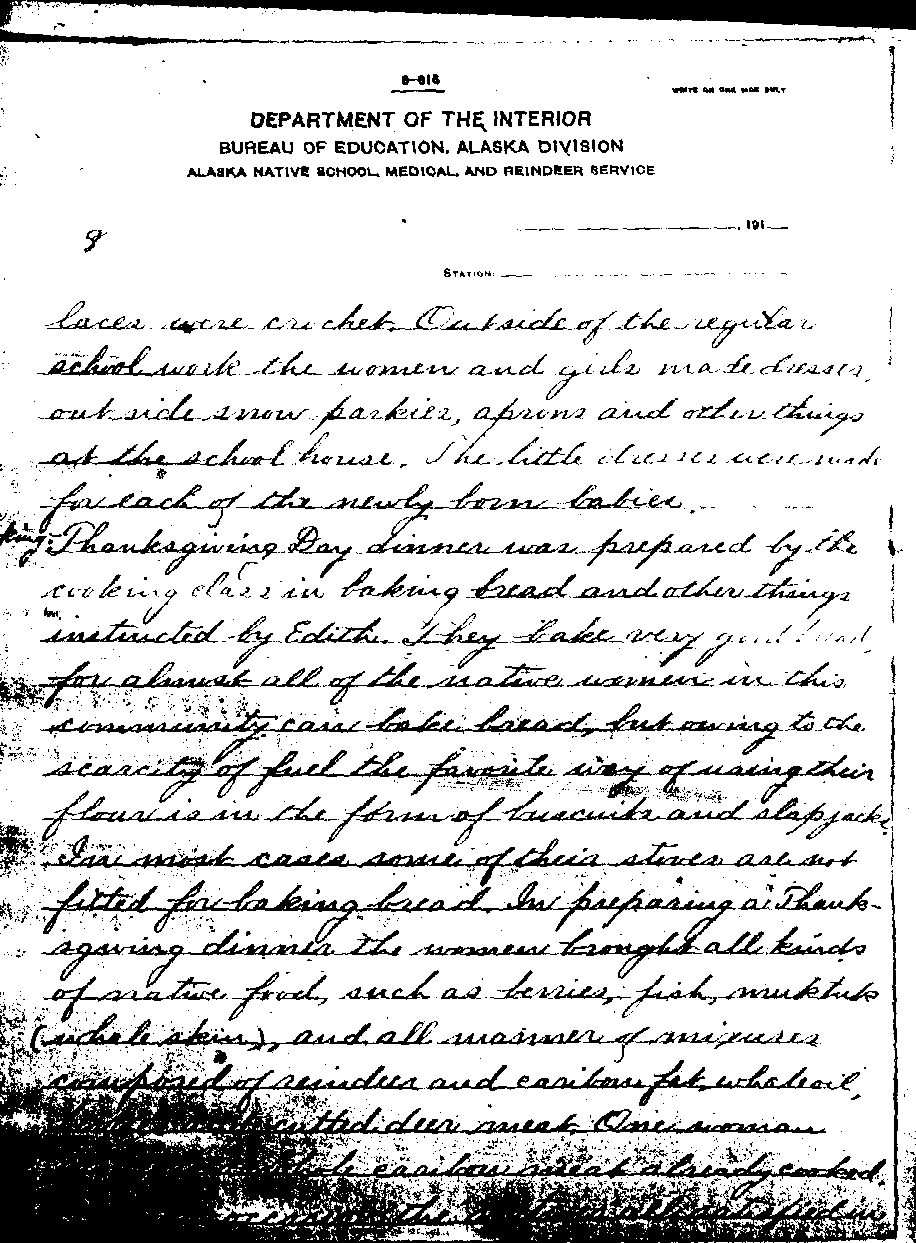 8-618
WRITE ON ONE SIDE ONLY
DEPARTMENT OF THE INTERIOR
BUREAU OF EDUCATION, ALASKA DIVISION
ALASKA NATIVE SCHOOL, MEDICAL, AND REINDEER SERVICE
, 191
8
STATION:
laces were crochet. Outside of the regular
school work the women and girls made dresses,
outside snow parkies, aprons and other things
at the school house. The little dresses were made
for each of the newly born babies.
Thanksgiving Day dinner was prepared by the
cooking class in baking bread and other things
instructed by Edith. They bake very good bread,
for almost all of the native women in this
community can bake bread, but owing to the
scarcity of fuel the favorite way of using their
flour is in the form of buscuits and slapjacks
In most cases some of their stoves are not
fitted for baking bread. In preparing a Thank-
sgiving dinner the women brought all kinds
of native food, such as berries, fish, muktuk
(whale skin), and all manner of mixures
composed of reindeer and caribou fat, whale oil,
cutted deer meat. One woman
caribou meat already cooked.
the